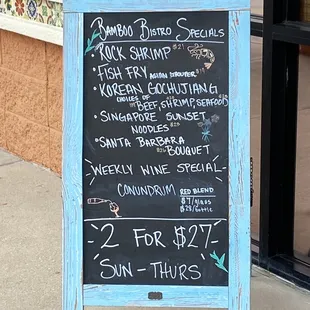 Bamboo Bistro Specials
Rock Shrimp $21
• Fish Fry Asian
• Korean Gochujiang
choices of
Beef, Shrimp, Seafood
• Singapore Sunset
Noodles $25
• Santa Barbara
Bouquet
Weekly Wine Special
Conundrum Red Blend
$7/glass
2 For $27
Sun - Thurs